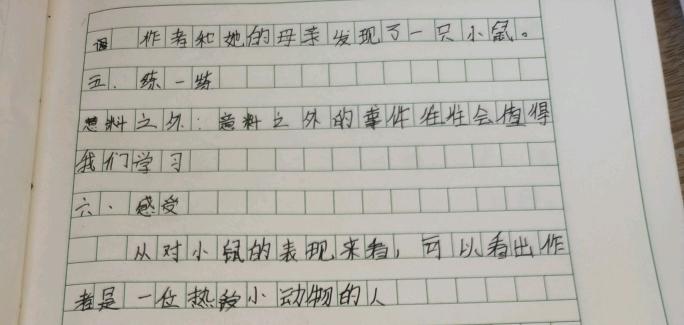 作者和她的母亲发现了一只小鼠。
五、练一练
意料之外：意料之外的事件往往会值得
我们学习
六、感受
从对小鼠的表现来看，可以看出作
者是一位热爱小动物的人